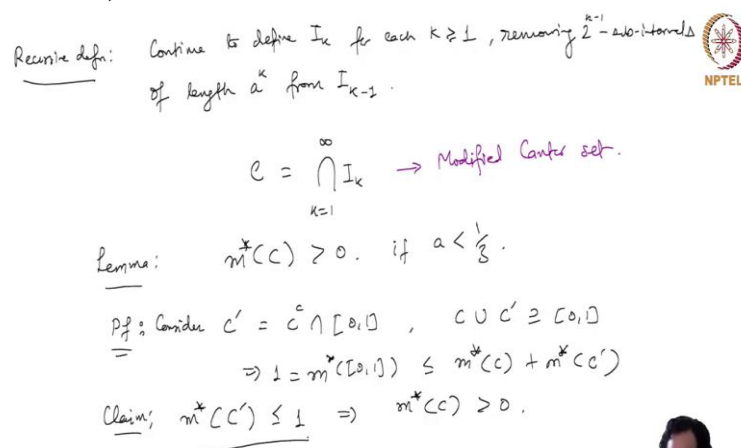 Recursive defn: Continue to define I_k for each k ≥ 1, removing 2^{k-1} - sub-intervals
NPTEL
of length a^k from I_{k-1}.
C = ⋂_{k=1}^{∞} I_k → Modified Cantor set.
Lemma: m*(C) > 0. if a < 1/3.
Pf: Consider C' = C^c ∩ [0,1], C ∪ C' ⊇ [0,1]
⇒ 1 = m*([0,1]) ≤ m*(C) + m*(C')
Claim: m*(C') ≤ 1 ⇒ m*(C) > 0.